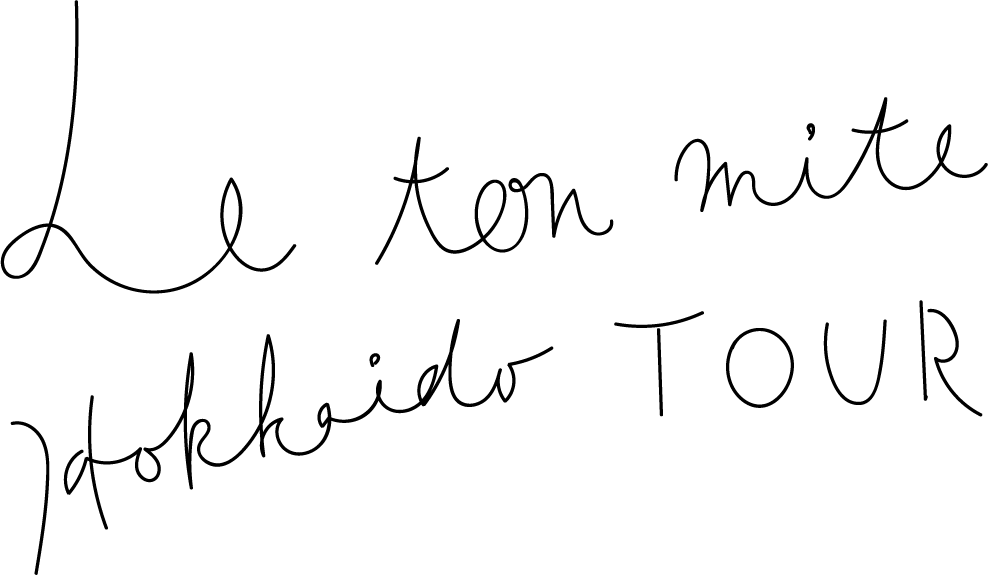 Le ton mite
Hokkaido TOUR